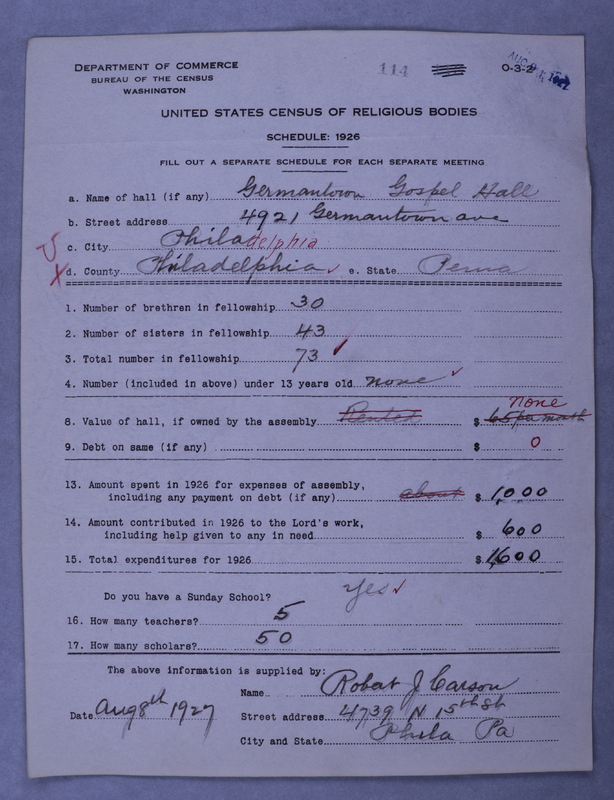 DEPARTMENT OF COMMERCE
BUREAU OF THE CENSUS
WASHINGTON
114
O-3-2
UNITED STATES CENSUS OF RELIGIOUS BODIES
SCHEDULE: 1926
FILL OUT A SEPARATE SCHEDULE FOR EACH SEPARATE MEETING
a. Name of hall (if any) Germantown Gospel Hall
b. Street address 4921 Germantown ave
c. City Philadelphia
d. County Philadelphia e. State Penna
1. Number of brethren in fellowship 30
2. Number of sisters in fellowship 43
3. Total number in fellowship 73
4. Number (included in above) under 13 years old none
none
8. Value of hall, if owned by the assembly Rented $ 65 per month
9. Debt on same (if any) $ 0
13. Amount spent in 1926 for expenses of assembly,
including any payment on debt (if any) about $ 1,000
14. Amount contributed in 1926 to the Lord's work,
including help given to any in need $ 600
15. Total expenditures for 1926 $ 1,600
Do you have a Sunday School? yes
16. How many teachers? 5
17. How many scholars? 50
The above information is supplied by:
Name Robert J Carson
Date Aug 8th 1927 Street address 4739 N 15th St
City and State Phila Pa